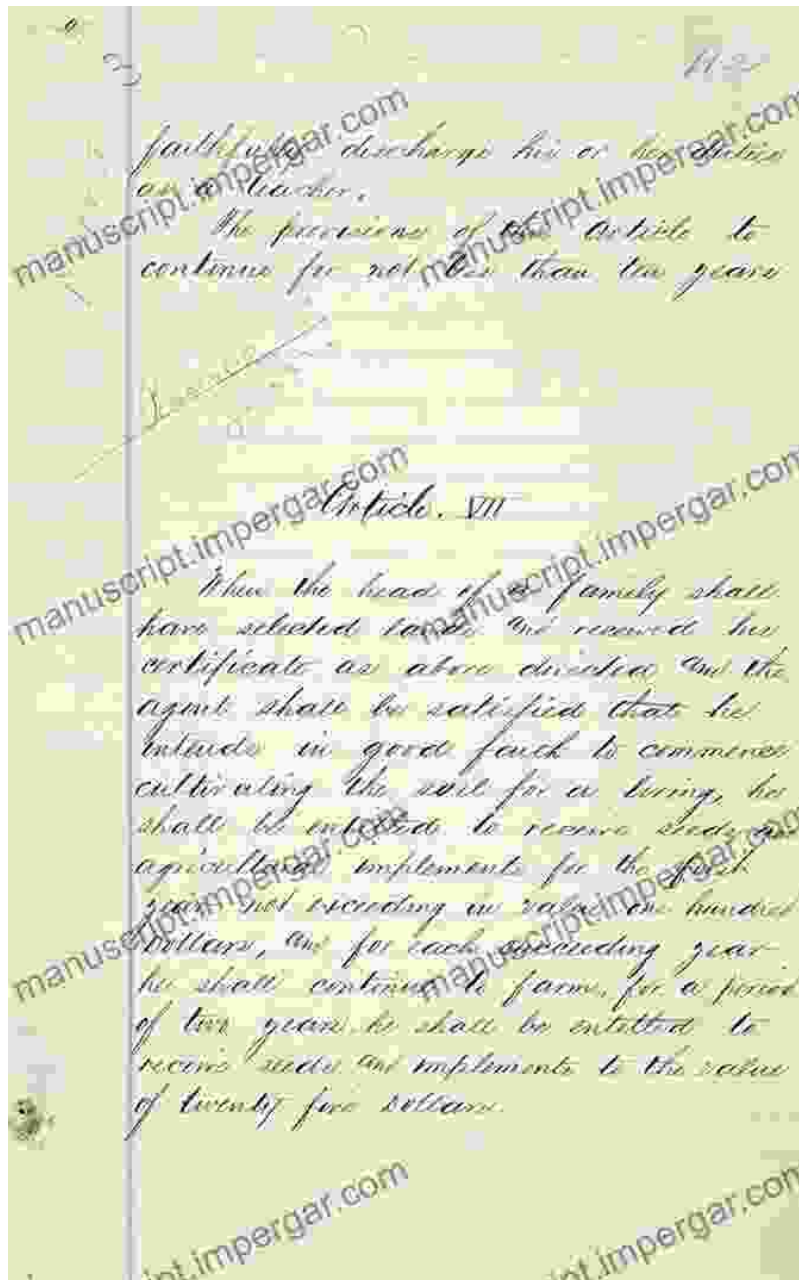 faithfully discharge his or her duties
as a teacher.
The provisions of this Article to
continue for not less than ten years
Article. VII
When the head of a family shall
have selected lands and received his
certificate as above directed and the
agent shall be satisfied that he
intends in good faith to commence
cultivating the soil for a living, he
shall be entitled to receive seeds and
agricultural implements for the first
year not exceeding in value one hundred
Dollars, and for each succeeding year
he shall continue to farm, for a period
of two years he shall be entitled to
receive seeds and implements to the value
of twenty five Dollars.
manuscript.impergar.com
manuscript.impergar.com
manuscript.impergar.com
manuscript.impergar.com
manuscript.impergar.com
manuscript.impergar.com
pt.impergar.com
pt.impergar.com